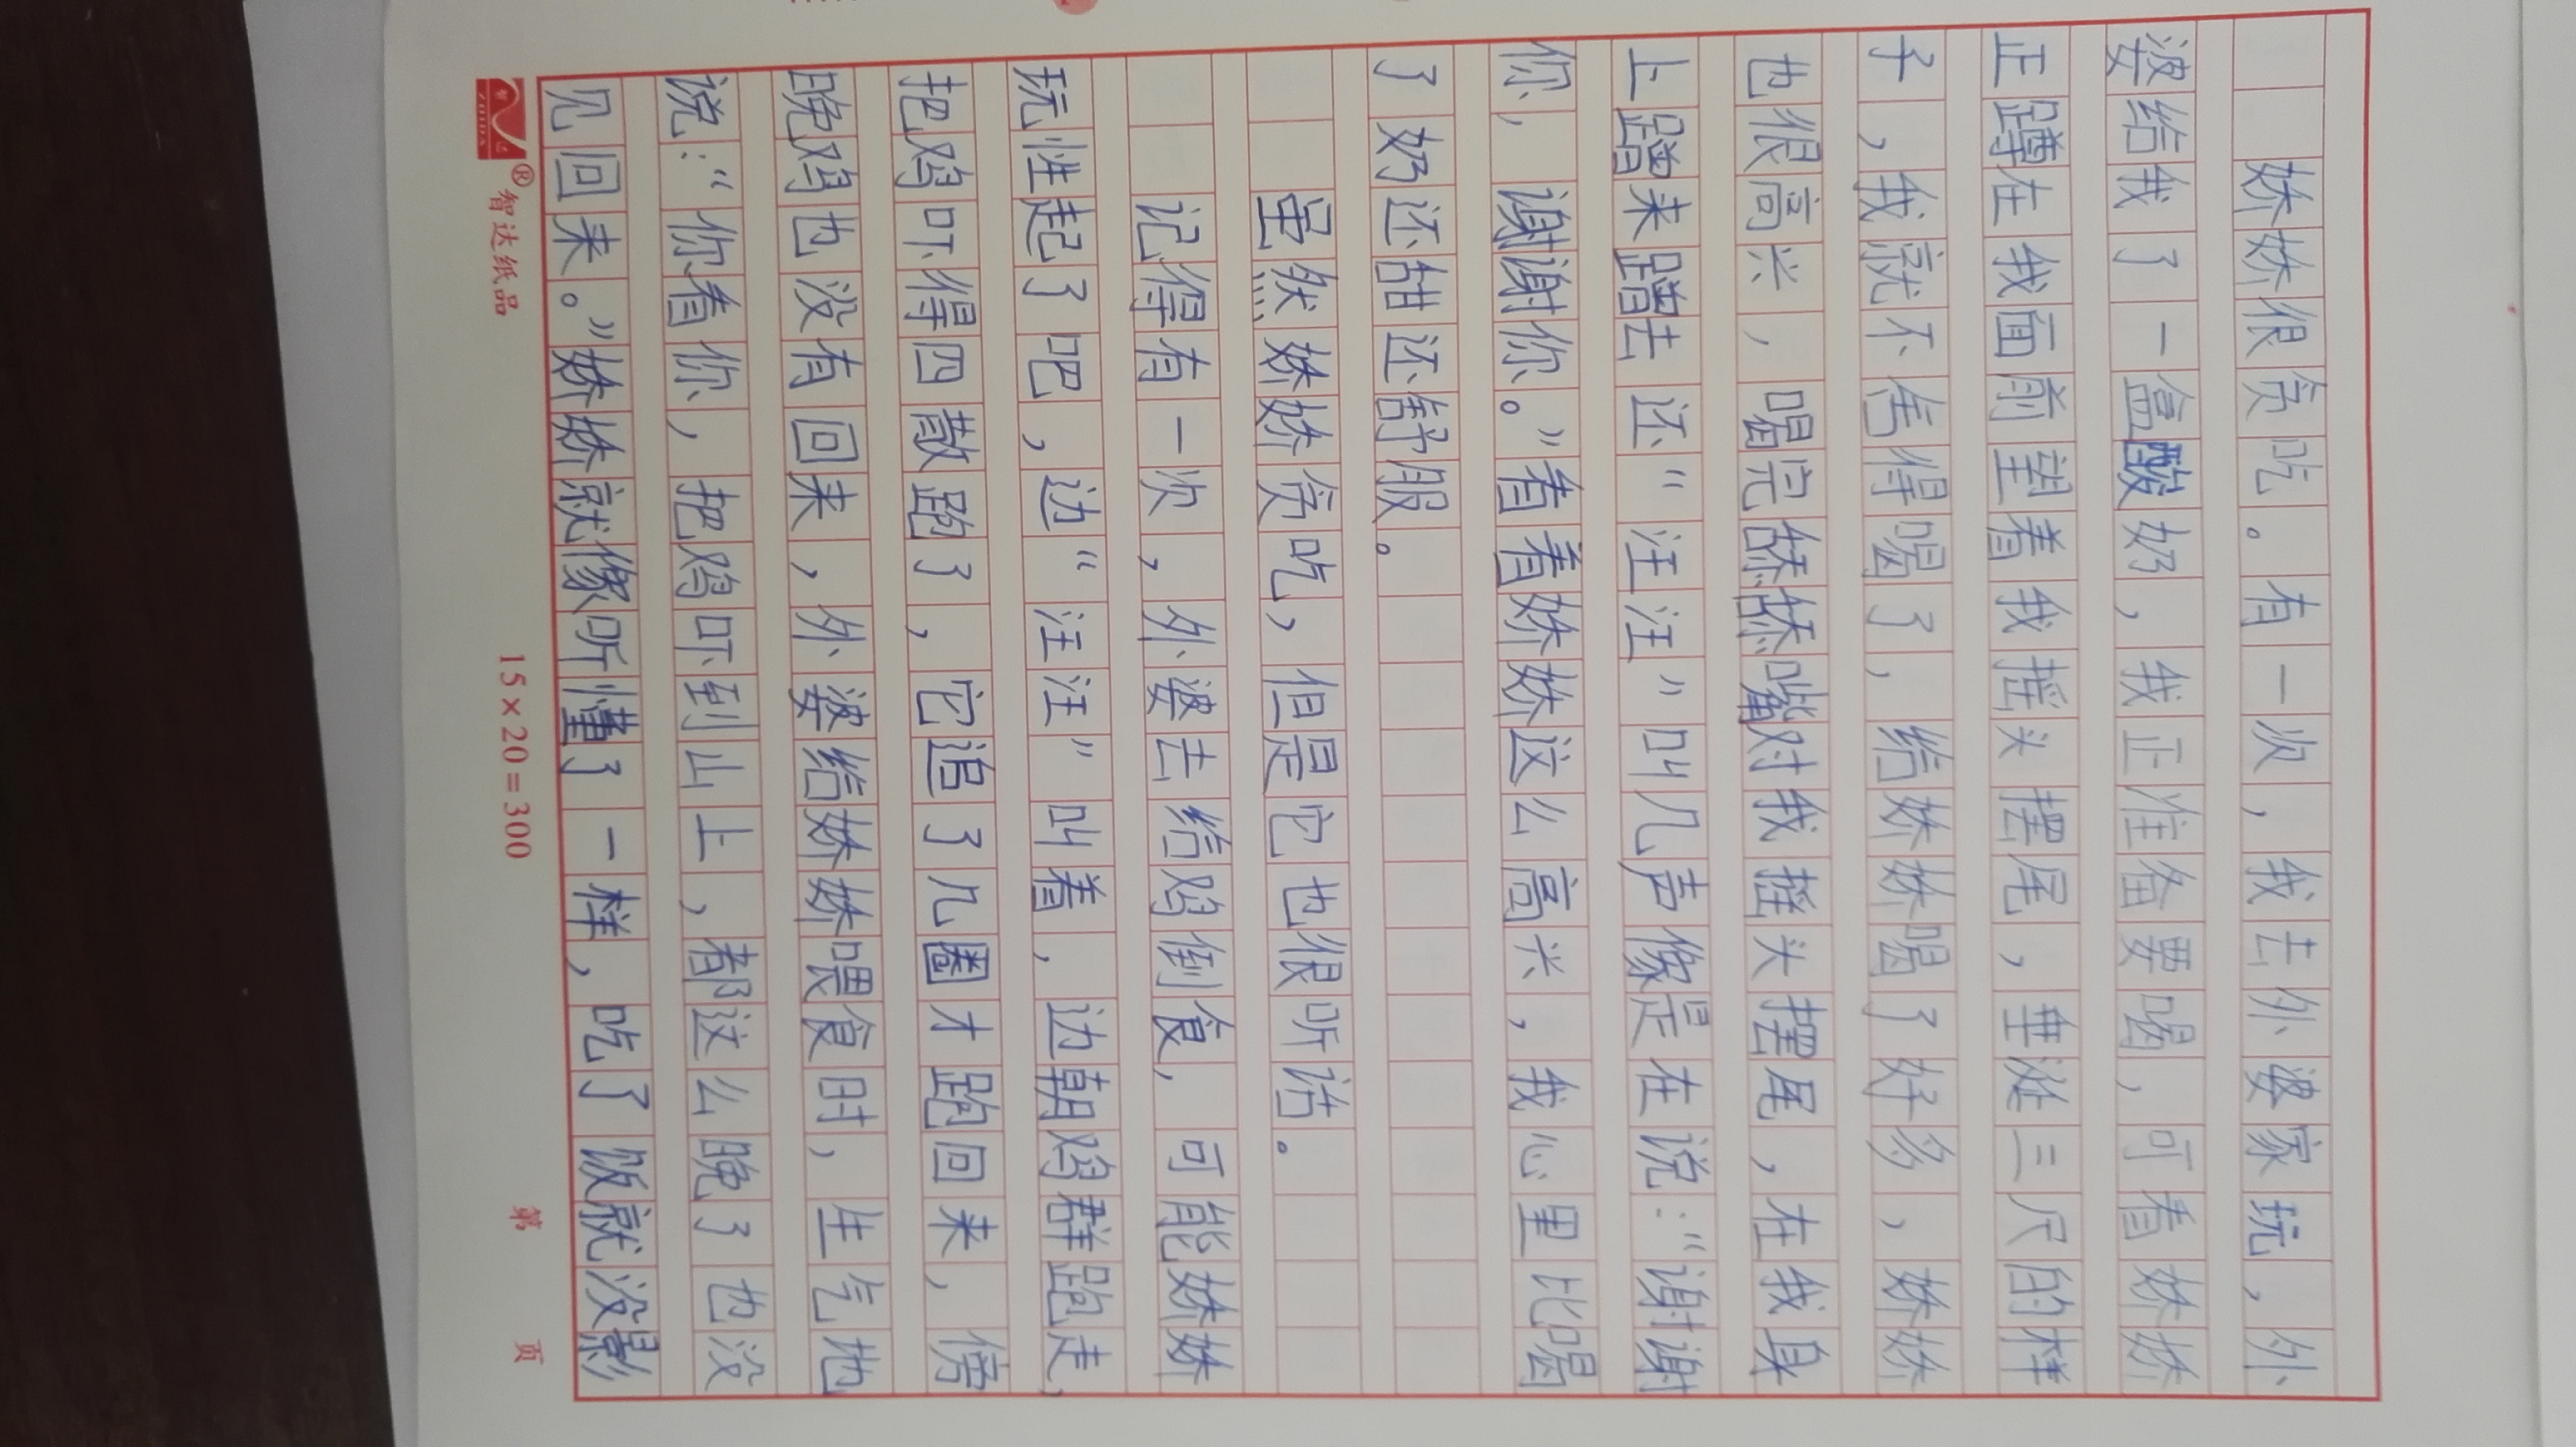 娇娇很贪吃。有一次，我去外婆家玩，外
婆给我了一盒酸奶，我正准备要喝，可看娇娇
正蹲在我面前望着我摇头摆尾，垂涎三尺的样
子，我就不舍得喝了，给娇娇喝了好多，娇娇
也很高兴，喝完舔舔嘴对我摇头摆尾，在我身
上蹭来蹭去还“汪汪”叫几声像是在说：“谢谢
你，谢谢你。”看着娇娇这么高兴，我心里比喝
了奶还甜还舒服。
虽然娇娇贪吃，但是它也很听话。
记得有一次，外婆去给鸡倒食，可能娇娇
玩性起了吧，边“汪汪”叫着，边朝鸡群跑走，
把鸡吓得四散跑了，它追了几圈才跑回来，傍
晚鸡也没有回来，外婆给娇娇喂食时，生气地
说：“你看你，把鸡吓到山上，都这么晚了也没
见回来。”娇娇就像听懂了一样，吃了饭就没影
智达纸品
15×20=300
第 页